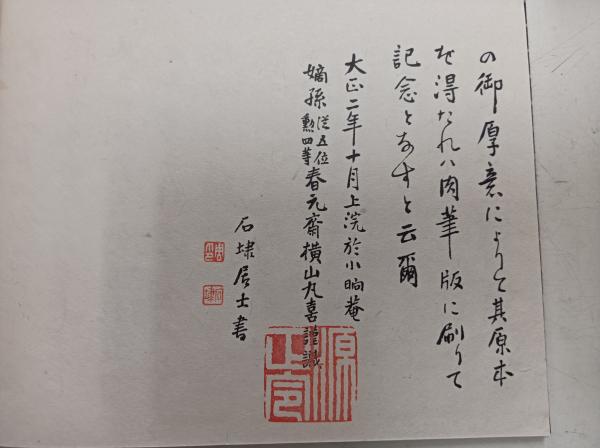 の御厚意によりて其原本
を得たれハ肉筆版に刷りて
記念となすと云爾
大正二年十月上浣於小晌菴
嫡孫従五位勲四等春元齋横山丸喜謹識
石埭居士書